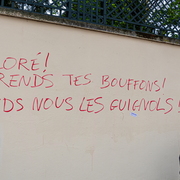 LORÉ!
RENDS TES BOUFFONS!
NDS NOUS LES GUIGNOLS!